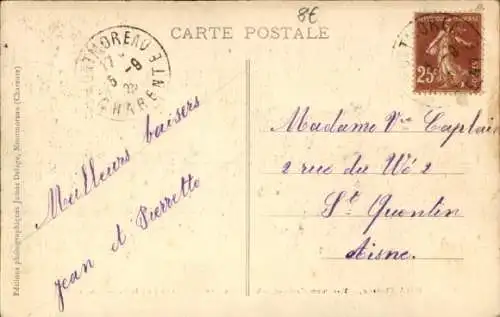 8€
CARTE POSTALE
MONTMOREAU
17
5-9
CHARENTE
25c
Editions photographiques James Deloge, Montmoreau (Charente)
Meilleurs baisers
Jean et Pierrette
Madame Vve Caplain
2 rue du Wé 2
St Quentin
Aisne.